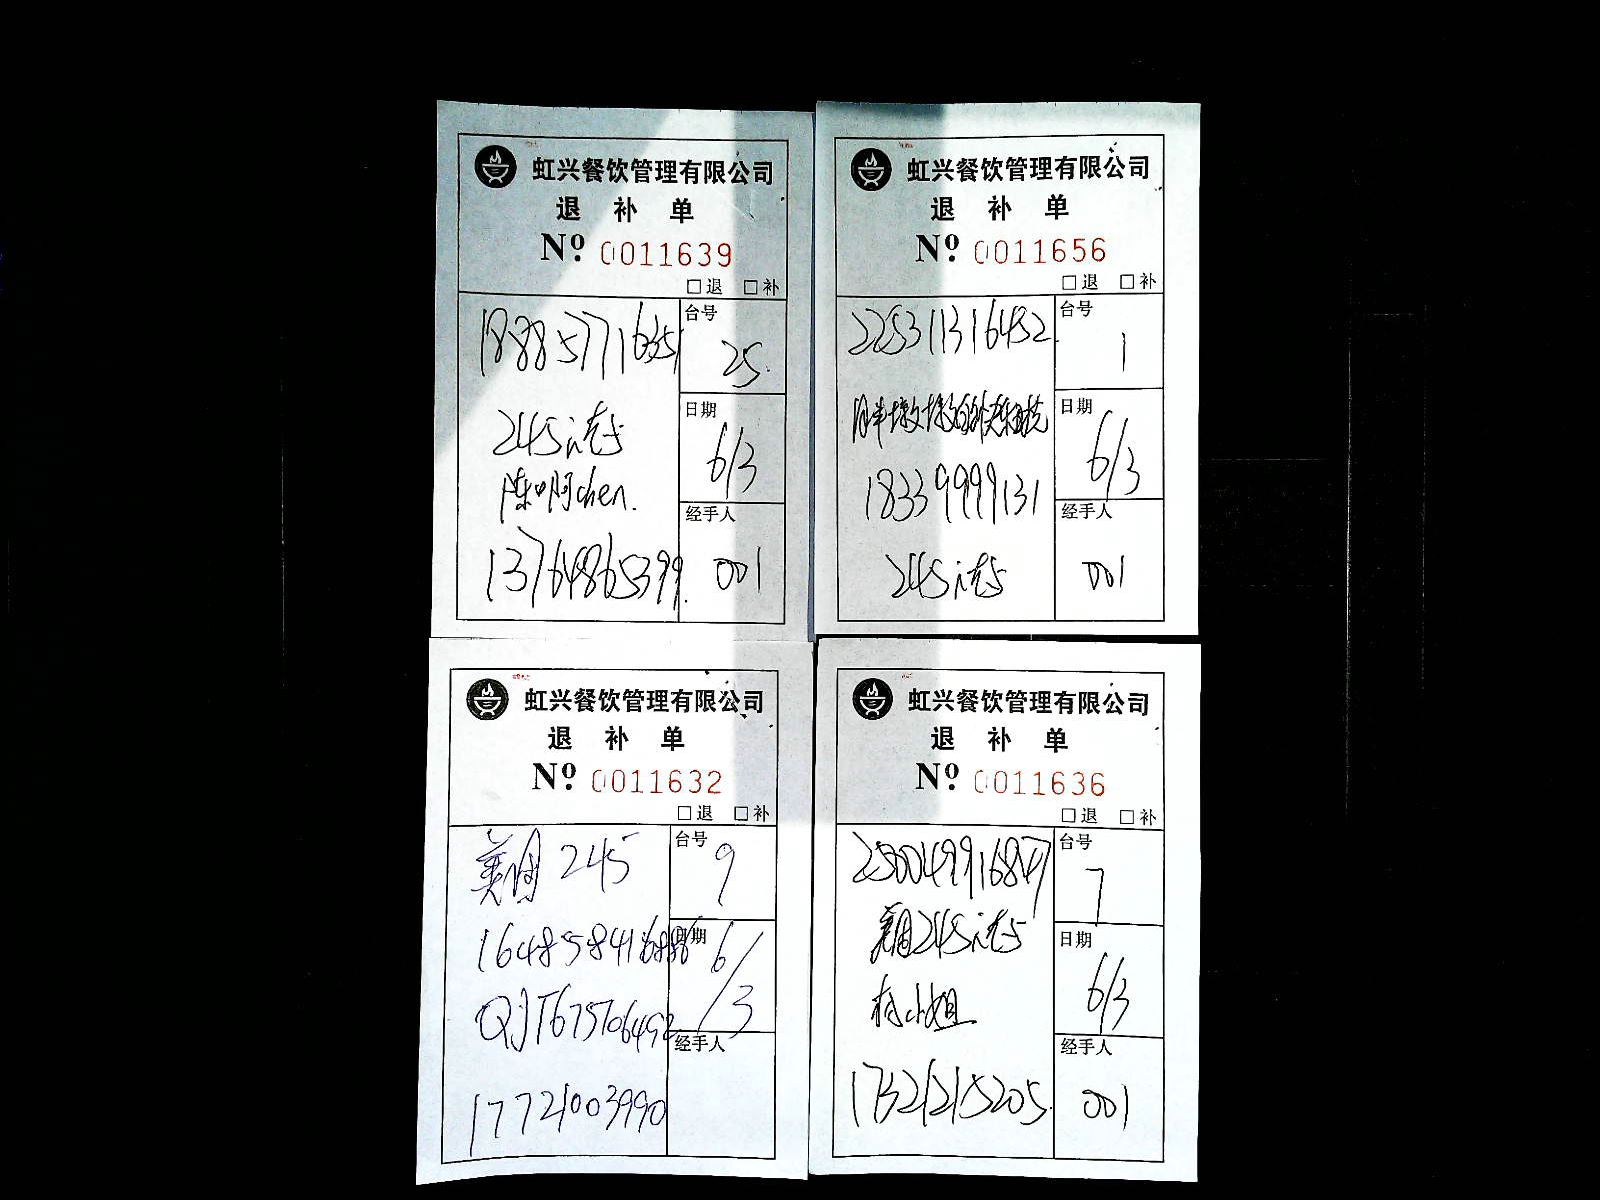 虹兴餐饮管理有限公司
退 补 单
Nº 0011639
□退 □补
188857716351
台号
25
245 1份
陈啊chen.
日期
6/3
13764865399
经手人
001
虹兴餐饮管理有限公司
退 补 单
Nº 0011656
□退 □补
225311316452
台号
1
日期
6/3
18339999131
245 1份
经手人
001
虹兴餐饮管理有限公司
退 补 单
Nº 0011632
□退 □补
美团 245
台号
9
日期
6/3
QJT675706492
17721003990
经手人
虹兴餐饮管理有限公司
退 补 单
Nº 0011636
□退 □补
台号
7
美团245
日期
6/3
小姐
17321215205
经手人
001